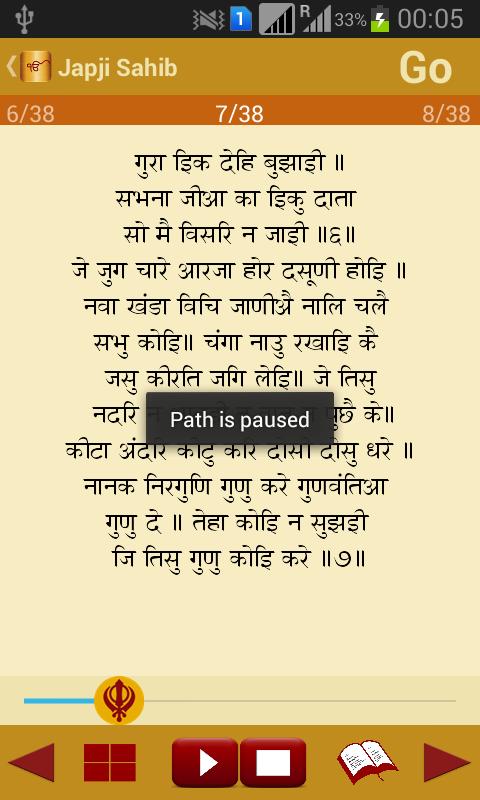 1 R 33% 00:05
Japji Sahib Go
6/38 7/38 8/38
गुरा इिक देहि बुझाइी ॥
सभना जीआ का इिकु दाता
सो मै विसरि न जाइी ॥६॥
जे जुग चारे आरजा होर दसूणी होइि ॥
नवा खंडा विचि जाणीअै नालि चलै
सभु कोइि॥ चंगा नाउ रखाइि कै
जसु कीरति जगि लेइि॥ जे तिसु
नदरि न पुछै के॥
Path is paused
कीटा अंदरि कीटु करि दोसी दोसु धरे ॥
नानक निरगुणि गुणु करे गुणवंतिआ
गुणु दे ॥ तेहा कोइि न सुझइी
जि तिसु गुणु कोइि करे ॥७॥